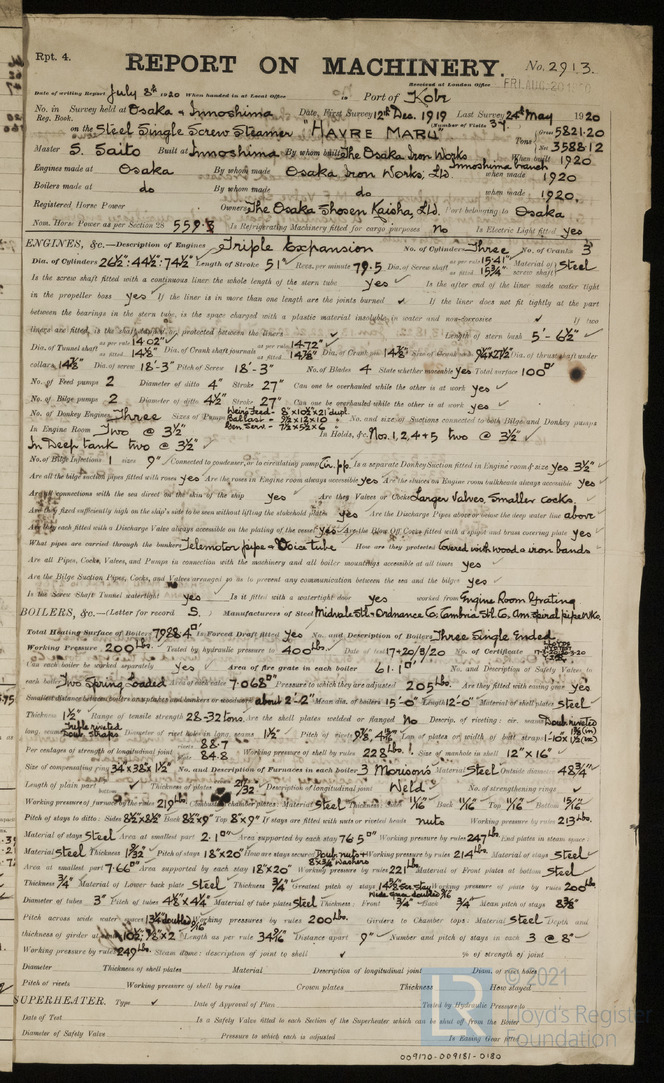 Rpt. 4.
REPORT ON MACHINERY.
No. 2913.
Received at London Office FRI. AUG. 20 1920
Date of writing Report July 8th 1920 When handed in at Local Office 19 Port of Kobe
No. in Reg. Book. Survey held at Osaka & Innoshima Date, First Survey 12th Dec. 1919 Last Survey 24th May 1920
(Number of Visits 37
on the Steel Single Screw Steamer "HAVRE MARU" Tons Gross 5821.20 Net 3588.12
Master S. Saito Built at Innoshima By whom built The Osaka Iron Works Innoshima branch When built 1920
Engines made at Osaka By whom made Osaka Iron Works, Ltd. when made 1920
Boilers made at do By whom made do when made 1920.
Registered Horse Power Owners The Osaka Shosen Kaisha, Ltd. Port belonging to Osaka
Nom. Horse Power as per Section 28 559.3 Is Refrigerating Machinery fitted for cargo purposes No Is Electric Light fitted yes
ENGINES, &c.—Description of Engines Triple Expansion No. of Cylinders Three No. of Cranks 3
Dia. of Cylinders 26½": 44½": 74½" Length of Stroke 51" Revs. per minute 79.5 Dia. of Screw shaft as per rule 15.41" as fitted 15¾" Material of screw shaft Steel
Is the screw shaft fitted with a continuous liner the whole length of the stern tube yes Is the after end of the liner made water tight
in the propeller boss yes If the liner is in more than one length are the joints burned ✓ If the liner does not fit tightly at the part
between the bearings in the stern tube, is the space charged with a plastic material insoluble in water and non-corrosive ✓ If two
liners are fitted, is the shaft lapped or protected between the liners ✓ Length of stern bush 5'-6½"
Dia. of Tunnel shaft as per rule 14.02" as fitted 14⅛" Dia. of Crank shaft journals as per rule 14.72" as fitted 14⅞" Dia. of Crank pin 14⅞" Size of Crank webs 9¼x27½" Dia. of thrust shaft under
collars 14⅞" Dia. of screw 18'-3" Pitch of Screw 18'-3" No. of Blades 4 State whether moveable yes Total surface 100 □'
No. of Feed pumps 2 Diameter of ditto 4" Stroke 27" Can one be overhauled while the other is at work yes
No. of Bilge pumps 2 Diameter of ditto 4½" Stroke 27" Can one be overhauled while the other is at work yes
No. of Donkey Engines Three Sizes of Pumps Weirs Feed - 8"x10½"x21" dupl. Ballast - 9½x12x10 Gen. Serv. - 7½x5½x6 No. and size of Suctions connected to both Bilge and Donkey pumps
In Engine Room Two @ 3½" In Holds, &c. Nos. 1, 2, 4 & 5 two @ 3½"
In Deep tank two @ 3½"
No. of Bilge Injections 1 sizes 9" Connected to condenser, or to circulating pump Cir. pp. Is a separate Donkey Suction fitted in Engine room & size yes 3½"
Are all the bilge suction pipes fitted with roses yes Are the roses in Engine room always accessible yes Are the sluices on Engine room bulkheads always accessible yes
Are all connections with the sea direct on the skin of the ship yes Are they Valves or Cocks Larger Valves, Smaller cocks.
Are they fixed sufficiently high on the ship's side to be seen without lifting the stokehold plates yes Are the Discharge Pipes above or below the deep water line above
Are they each fitted with a Discharge Valve always accessible on the plating of the vessel yes Are the Blow Off Cocks fitted with a spigot and brass covering plate yes
What pipes are carried through the bunkers Telemotor pipe & Voice tube How are they protected Covered with wood & iron bands
Are all Pipes, Cocks, Valves, and Pumps in connection with the machinery and all boiler mountings accessible at all times yes
Are the Bilge Suction Pipes, Cocks, and Valves arranged so as to prevent any communication between the sea and the bilges yes
Is the Screw Shaft Tunnel watertight yes Is it fitted with a watertight door yes worked from Engine Room Grating
BOILERS, &c.—(Letter for record S. ) Manufacturers of Steel Midvale Stl. & Ordnance Co. Cambria Stl. Co. Am. Spiral pipe Wks.
Total Heating Surface of Boilers 7988.4 □' Is Forced Draft fitted yes No. and Description of Boilers Three Single Ended
Working Pressure 200 lbs. Tested by hydraulic pressure to 400 lbs. Date of test 17 & 20/3/20 No. of Certificate
Can each boiler be worked separately yes Area of fire grate in each boiler 61.1 □' No. and Description of Safety Valves to
each boiler Two Spring Loaded Area of each valve 7.068 □" Pressure to which they are adjusted 205 lbs. Are they fitted with easing gear yes
Smallest distance between boilers or uptakes and bunkers or woodwork about 2'-2" Mean dia. of boilers 15'-0" Length 12'-0" Material of shell plates Steel
Thickness 1½" Range of tensile strength 28-32 tons Are the shell plates welded or flanged No Descrip. of riveting: cir. seams Doub. riveted
long. seams Triple riveted Doub. straps Diameter of rivet holes in long. seams 1½" Pitch of rivets 9⅞" Lap of plates or width of butt straps
Per centages of strength of longitudinal joint rivets 88.7 plate 84.8 Working pressure of shell by rules 228 lbs. Size of manhole in shell 12" x 16"
Size of compensating ring 34"x38"x1½" No. and Description of Furnaces in each boiler 3 Morisons Material Steel Outside diameter 48¾"
Length of plain part Thickness of plates 21/32" Description of longitudinal joint Weld No. of strengthening rings ✓
Working pressure of furnace by the rules 219 lbs. Combustion chamber plates: Material Steel Thickness: Sides 11/16" Back 11/16" Top 11/16" Bottom 15/16"
Pitch of stays to ditto: Sides 8½"x8½" Back 8½"x9" Top 8"x9" If stays are fitted with nuts or riveted heads nuts Working pressure by rules 213 lbs.
Material of stays Steel Area at smallest part 2.1 □" Area supported by each stay 76.5 □" Working pressure by rules 247 lbs. End plates in steam space:
Material Steel Thickness 1 9/32" Pitch of stays 18"x20" How are stays secured Doub. nuts & 8"x¾" washers Working pressure by rules 214 lbs. Material of stays Steel
Area at smallest part 7.66 □" Area supported by each stay 18"x20" Working pressure by rules 221 lbs. Material of Front plates at bottom Steel
Thickness ¾" Material of Lower back plate Steel Thickness ¾" Greatest pitch of stays Working pressure of plate by rules 200 lbs.
Diameter of tubes 3" Pitch of tubes 4⅛"x4¼" Material of tube plates Steel Thickness: Front ¾" Back ¾" Mean pitch of stays 8⅜"
Pitch across wide water spaces 13¾" doubled 9/16 Working pressures by rules 200 lbs. Girders to Chamber tops: Material Steel Depth and
thickness of girder at centre 10½"; ⅞"x2 Length as per rule 34 9/16" Distance apart 9" Number and pitch of stays in each 3 @ 8"
Working pressure by rules 249 lbs. Steam dome: description of joint to shell ✓ % of strength of joint
Diameter Thickness of shell plates Material Description of longitudinal joint Diam. of rivet holes
Pitch of rivets Working pressure of shell by rules Crown plates Thickness How stayed
SUPERHEATER. Type ✓ Date of Approval of Plan Tested by Hydraulic Pressure to
Date of Test Is a Safety Valve fitted to each Section of the Superheater which can be shut off from the Boiler
Diameter of Safety Valve Pressure to which each is adjusted Is Easing Gear fitted
© 2021
Lloyd's Register
Foundation
009170-009181-0180